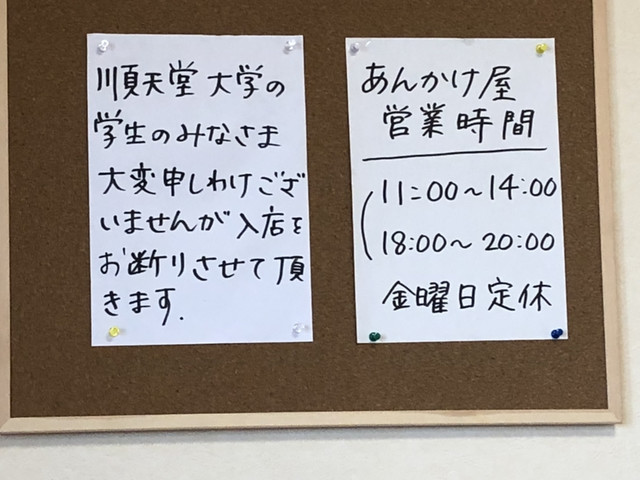 順天堂大学の
学生のみなさま
大変申しわけござ
いませんが入店を
お断りさせて頂
きます.
あんかけ屋
営業時間
11:00〜14:00
18:00〜20:00
金曜日定休